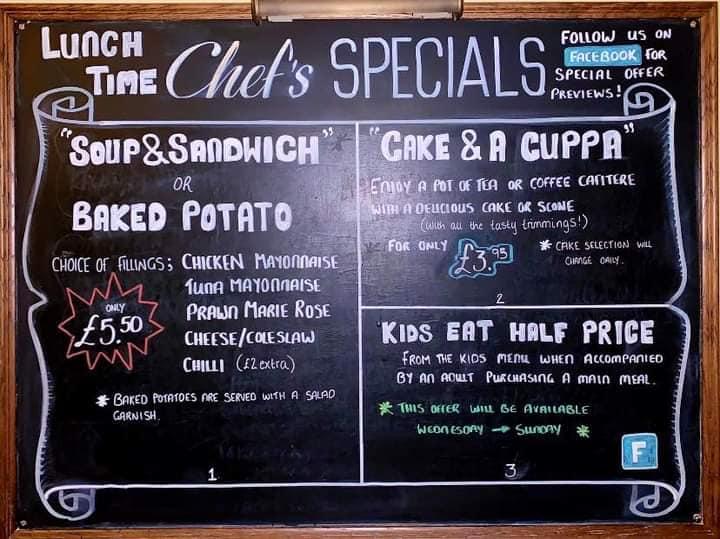 LUNCH TIME Chef's SPECIALS
FOLLOW US ON
FACEBOOK FOR
SPECIAL OFFER
PREVIEWS!
"SOUP & SANDWICH"
OR
BAKED POTATO
CHOICE OF FILLINGS; CHICKEN MAYONNAISE
TUNA MAYONNAISE
PRAWN MARIE ROSE
CHEESE/COLESLAW
CHILLI (£2 extra)
ONLY
£5.50
* BAKED POTATOES ARE SERVED WITH A SALAD
GARNISH.
1
"CAKE & A CUPPA"
ENJOY A POT OF TEA OR COFFEE CAFITERE
WITH A DELICIOUS CAKE OR SCONE
(with all the tasty trimmings!)
FOR ONLY £3.95
* CAKE SELECTION WILL
CHANGE DAILY.
2
KIDS EAT HALF PRICE
FROM THE KIDS MENU WHEN ACCOMPANIED
BY AN ADULT PURCHASING A MAIN MEAL.
* THIS OFFER WILL BE AVAILABLE
WEDNESDAY → SUNDAY *
F
3